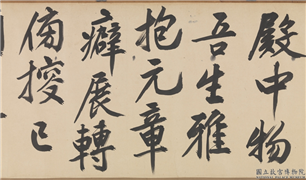 殿中物
吾生雅
抱元章
癖展轉
備
國立故宮博物院